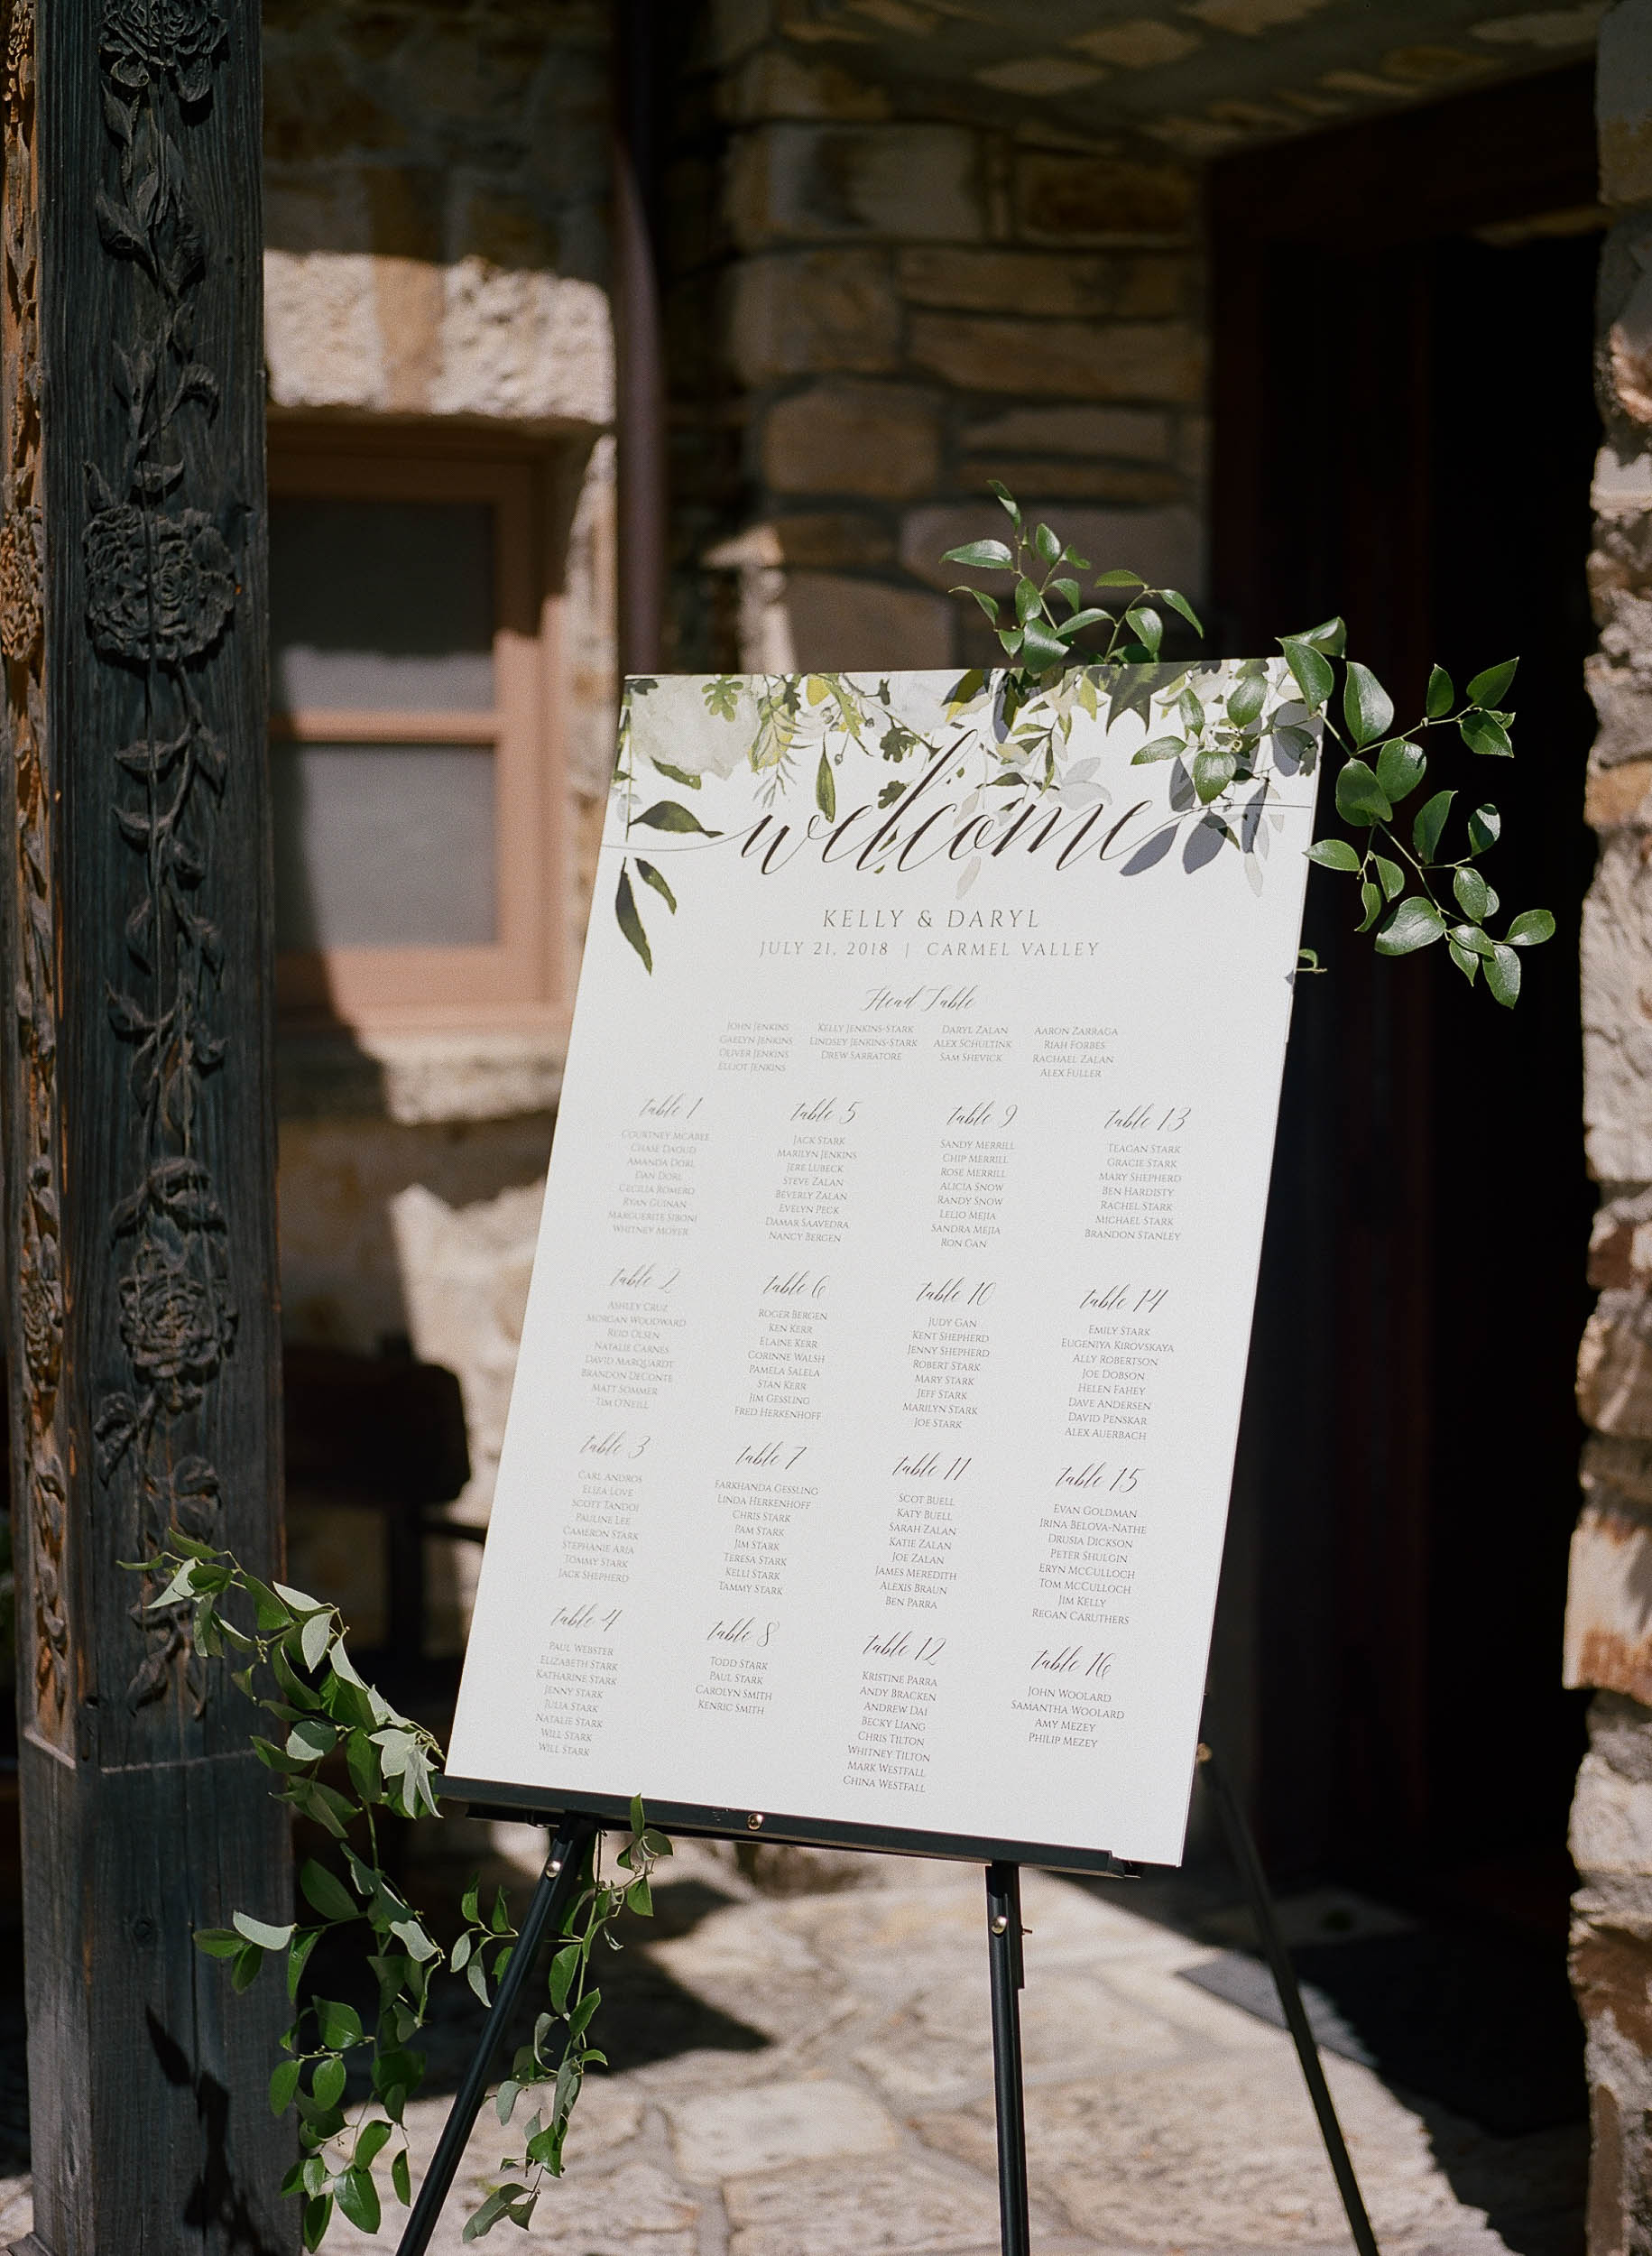 welcome
KELLY & DARYL
JULY 21, 2018 | CARMEL VALLEY
Head Table
JOHN JENKINS
GAELYN JENKINS
OLIVER JENKINS
ELLIOT JENKINS
KELLY JENKINS-STARK
LINDSEY JENKINS-STARK
DREW SARRATORE
DARYL ZALAN
ALEX SCHULTINK
SAM SHEVICK
AARON ZARRAGA
RIAH FORBES
RACHAEL ZALAN
ALEX FULLER
table 1
COURTNEY MCABEE
CHASE DAOUD
AMANDA DORL
DAN DORL
CECILIA ROMERO
RYAN GUINAN
MARGUERITE SIBONI
WHITNEY MOYER
table 2
ASHLEY CRUZ
MORGAN WOODWARD
REID OLSEN
NATALIE CARNES
DAVID MARQUARDT
BRANDON DECONTE
MATT SOMMER
TIM O'NEILL
table 3
CARL ANDROS
ELIZA LOVE
SCOTT TANDOI
PAULINE LEE
CAMERON STARK
STEPHANIE ARIA
TOMMY STARK
JACK SHEPHERD
table 4
PAUL WEBSTER
ELIZABETH STARK
KATHARINE STARK
JENNY STARK
JULIA STARK
NATALIE STARK
WILL STARK
WILL STARK
table 5
JACK STARK
MARILYN JENKINS
JERE LUBECK
STEVE ZALAN
BEVERLY ZALAN
EVELYN PECK
DAMAR SAAVEDRA
NANCY BERGEN
table 6
ROGER BERGEN
KEN KERR
ELAINE KERR
CORINNE WALSH
PAMELA SALELA
STAN KERR
JIM GESSLING
FRED HERKENHOFF
table 7
FARKHANDA GESSLING
LINDA HERKENHOFF
CHRIS STARK
PAM STARK
JIM STARK
TERESA STARK
KELLI STARK
TAMMY STARK
table 8
TODD STARK
PAUL STARK
CAROLYN SMITH
KENRIC SMITH
table 9
SANDY MERRILL
CHIP MERRILL
ROSE MERRILL
ALICIA SNOW
RANDY SNOW
LELIO MEJIA
SANDRA MEJIA
RON GAN
table 10
JUDY GAN
KENT SHEPHERD
JENNY SHEPHERD
ROBERT STARK
MARY STARK
JEFF STARK
MARILYN STARK
JOE STARK
table 11
SCOT BUELL
KATY BUELL
SARAH ZALAN
KATIE ZALAN
JOE ZALAN
JAMES MEREDITH
ALEXIS BRAUN
BEN PARRA
table 12
KRISTINE PARRA
ANDY BRACKEN
ANDREW DAI
BECKY LIANG
CHRIS TILTON
WHITNEY TILTON
MARK WESTFALL
CHINA WESTFALL
table 13
TEAGAN STARK
GRACIE STARK
MARY SHEPHERD
BEN HARDISTY
RACHEL STARK
MICHAEL STARK
BRANDON STANLEY
table 14
EMILY STARK
EUGENIYA KIROVSKAYA
ALLY ROBERTSON
JOE DOBSON
HELEN FAHEY
DAVE ANDERSEN
DAVID PENSKAR
ALEX AUERBACH
table 15
EVAN GOLDMAN
IRINA BELOVA-NATHE
DRUSIA DICKSON
PETER SHULGIN
ERYN MCCULLOCH
TOM MCCULLOCH
JIM KELLY
REGAN CARUTHERS
table 16
JOHN WOOLARD
SAMANTHA WOOLARD
AMY MEZEY
PHILIP MEZEY